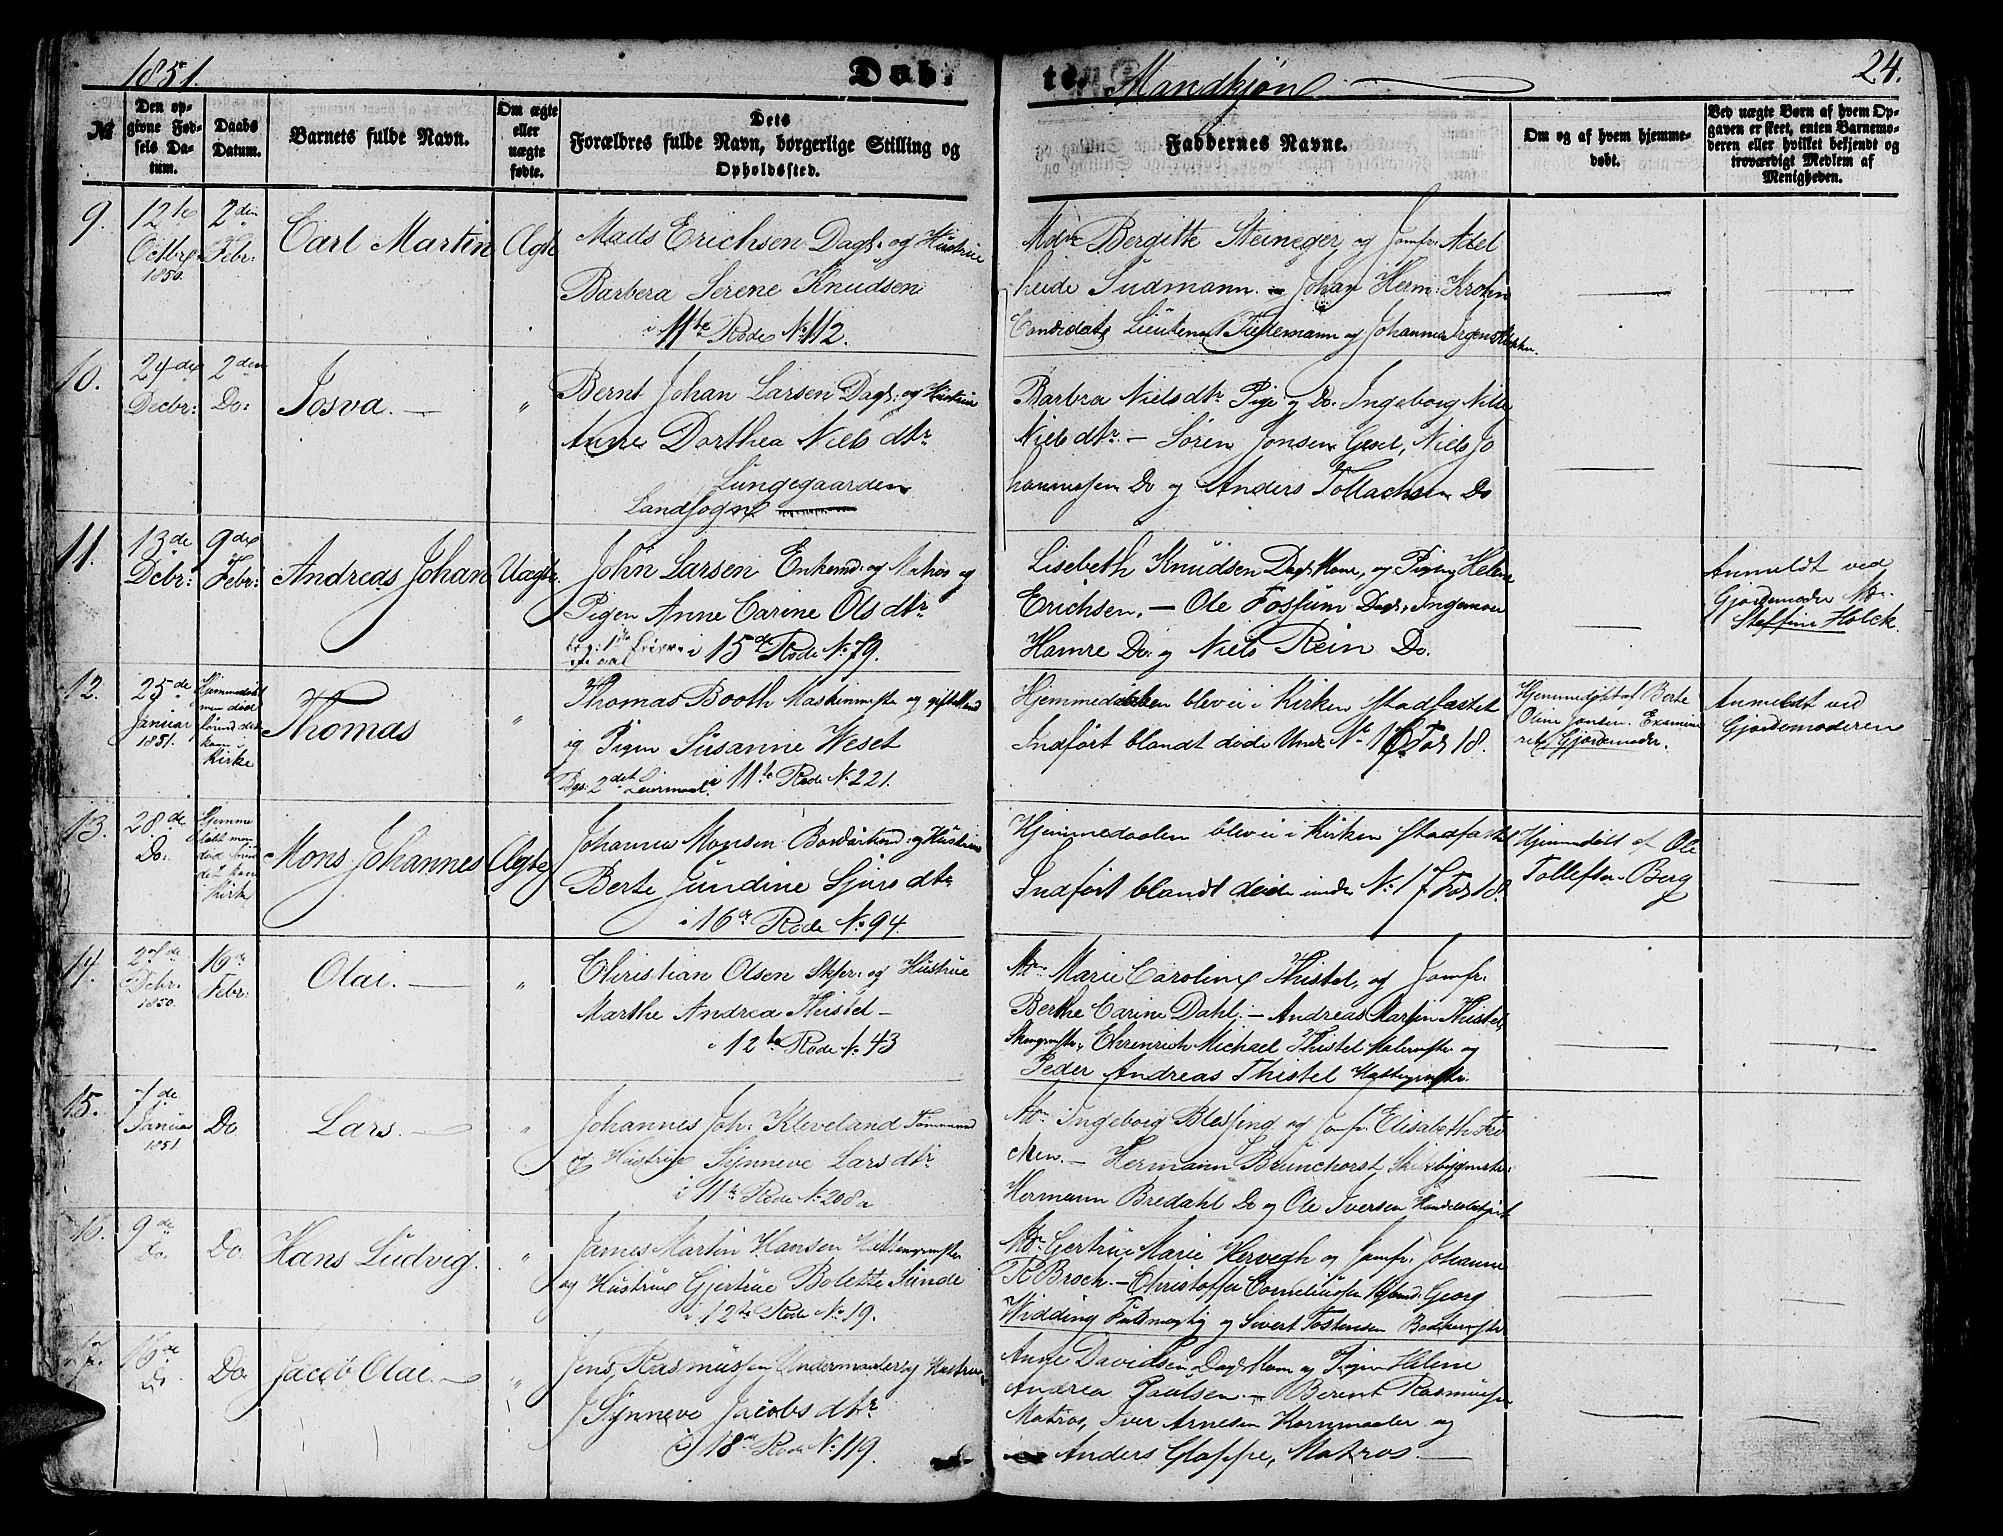 1851.
Døb-
te. Mandkjøn
24.
№
Den op-
givne Fød-
sels Da-
tum.
Daabs
Datum.
Barnets fulde Navn.
Om ægte
eller
uægte
fødte.
Dets
Forældres fulde Navn, borgerlige Stilling og
Opholdssted.
Faddernes Navne.
Om og af hvem hjemme-
døbt.
Ved uægte Børn af hvem Op-
gaven er skeet, enten Barnemo-
deren eller hvilket bekjendt og
troværdigt Medlem af
Menigheden.
9.
12te
Octbr
1850.
2den
Febr:
Carl Martin
Ægte
Mads Erichsen Dagl: og Hustrue
Barbera Serene Knudsen
i 11te Rode No 112.
Mdm Bergitte Steineger og Jomfr. Adel
heide Sudmann. - Johan Herm: Krohn
Candidat, Lieutenant Tiedemann og Johannes Irgens
10.
24de
Decbr:
2den
Do:
Josva. —
"
Bernt Johan Larsen Dagl: og Hustrue
Anne Dorthea Nielsdtr
Lungegaarden
Landsogne
Barbra Nielsdtr Pige og Do. Ingeborg
Nielsdtr. - Søren Jonsen Gesel, Niels Jo
hannessen Do og Anders Tollachsen Do
11.
13de
Dcbr:
9de
Febr:
Andreas Johan
Uægte
John Larsen Enkemd. og Matros og
Pigen Anne Carine Olsdtr
i 15de Rode No 79.
Lisebeth Knudsen Dagl. Kone, og Pigen Helene
Erichsen. - Ole Fossum Dagl., Ingemoer
Hamre Do. og Niels Rein Do.
Anmeldt ved
Gjordemoder Md.
Steffine Holck.
12.
25de
Januar
1851.
Hjemmedøbt
men død
førend det
kom i
Kirke
Thomas
"
Thomas Booth Maskinmester og gift Mand
og Pigen Susanne Weset
Bgs: 2det Leiermaal. i 11te Rode No 221.
Hjemmedaaben blev ei i Kirken stadfæstet
Indført blandt døde Under No 16 Fol 18.
Hjemmedøbt af Berte
Oline Jansen. Examine
ret Gjordemoder.
Anmeldt ved
Gjordemoderen
13.
28de
Do.
Hjemme
døbt men
død førend
det kom i
Kirke
Mons Johannes
Ægte
Johannes Monsen Bordørkend: og Hustrue
Berte Gundine Sjursdtr
i 16de Rode No 94.
Hjemmedaaben blev ei i Kirken stadfæstet
Indført blandt døde under No 17 Fol 18.
Hjemmedøbt af Ole
Tollefsen Berg
14.
27de
Dcbr.
1850.
16de
Febr:
Olai. —
"
Christian Olsen Skpr: og Hustrue
Marthe Andrea Thistel —
i 12te Rode No 43
Mdm Marie Caroline Thistel, og Jomfr.
Berthe Carine Dahl. - Andreas Martin Thistel,
Ehrenrich Michael Thistel Malermstr og
Peder Andreas Thistel Hattegmstr.
15.
7de
Januar
1851
Do
Lars. —
"
Johannes Joh. Kleveland Tømmermd
og Hustrue Synneve Larsdtr
i 11te Rode No 208a
Mdm Ingeborg Blessing og Jomfr. Elisabeth Fro
chen. - Hermann Brunchorst Skibsbygmstr:
Herman Bredahl Do og Ole Iversen Handelsbetjent
16.
9de
Do.
Do
Hans Ludvig.
"
James Martin Hansen
og Hustrue Gjertrue Bolette Sunde
i 12te Rode No 19.
Mdm Gertrue Marie Hervegh og Jomfr. Johanne
R. Broch. - Christoffer Corneliussen Georg
Widding Fuldmægtig og Sivert Tostensen Bødkermstr
17.
16de
Do
Do
Jacob Olai. —
"
Jens Rasmussen Undermaaler og Hustrue
Synneve Jacobsdtr
i 18de Rode No 119.
Anne Davidsen, Dagl. Kone og Pigen Helene
Andrea Paulsen. - Berent Rasmussen
Matros, Iver Arnesen Kornmaaler og
Anders Glappe, Matros. —